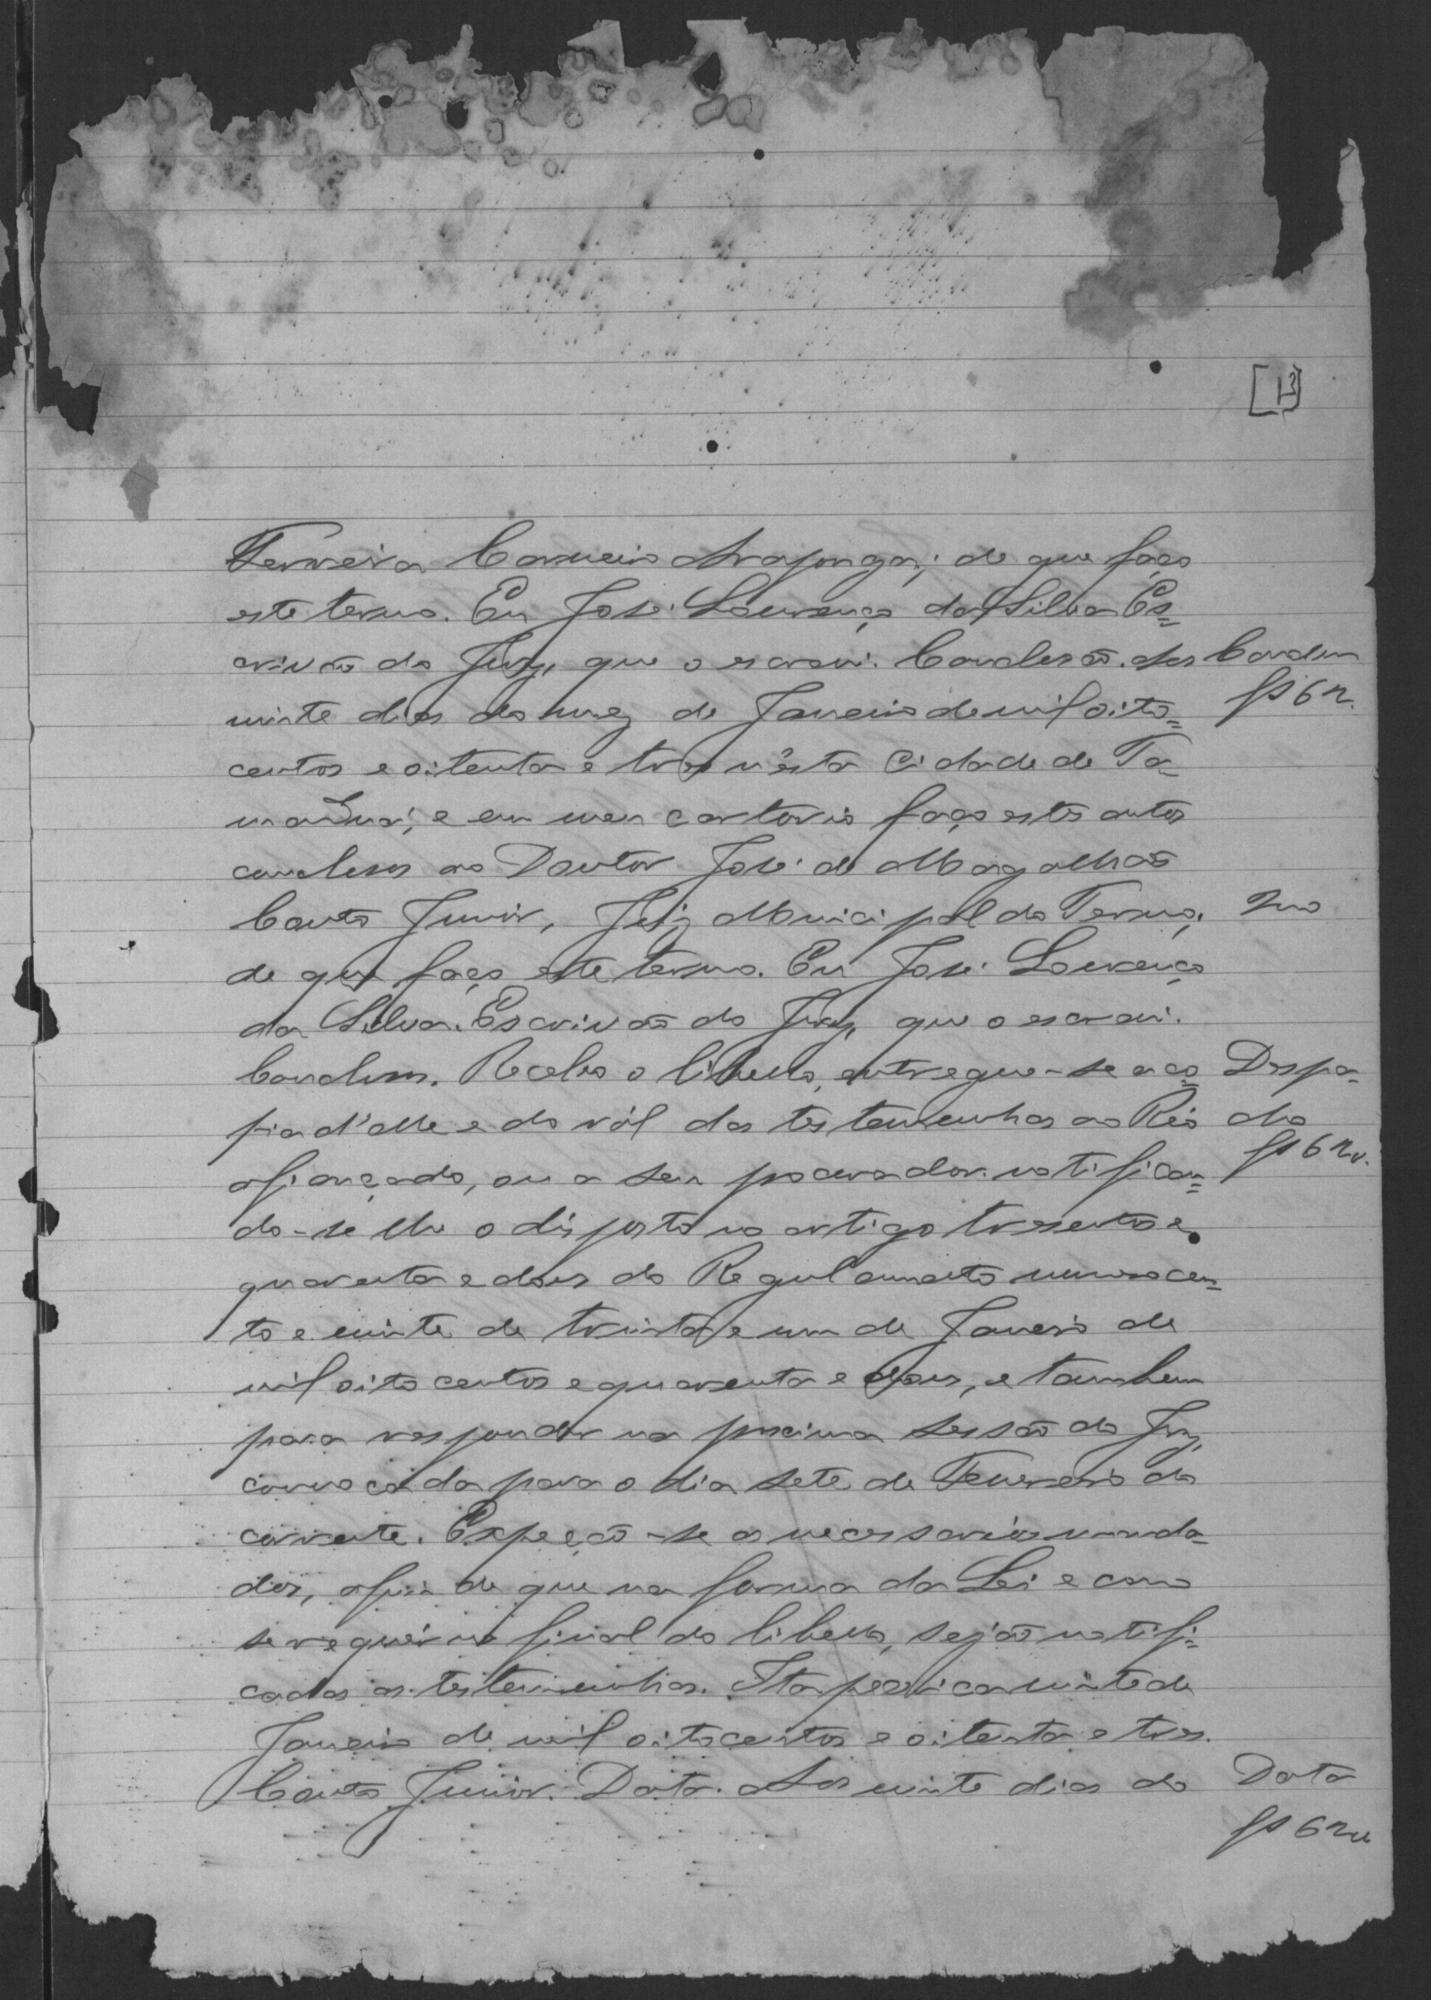 [13]
Ferreira Carneiro Araponga; de que faço
este termo. Eu José Lourenço da Silva Es=
crivão do Jury, que o escrevi. Conclusão. Aos
Conclum
fs 62
vinte dias do mez de Janeiro de mil oito=
centos e oitenta e tres nésta Cidade de Ta=
e em meu cartorio faço estes autos
conclusos ao Doutor José de Magalhães
Couto Junior, Juiz Municipal do Termo,
de que faço este termo. Eu José Lourenço
da Silva. Escrivão do Jury, que o escrevi.
Conclusos. Recebo o libello, entregue-se a co
Despa-
pia d'elle e do ról das testemunhas ao Réo
cho
fs 62v.
afiançado, ou a seu procurador notifican=
do-se lhe o disposto no artigo tresentos e
quarenta e dous do Regulamento numero cen=
to e vinte de trinta e um de Janeiro de
mil oito centos e quarenta e dous, e tambem
para responder na procima sessão do Jury,
convocada para o dia sete de Fevereiro do
corrente. Expeção-se os necessarios manda-
dos, afim de que na forma da Lei e como
se requér no final do libello, sejão notifi=
cadas as testemunhas. Itapecirica vinte de
Janeiro de mil oitocentos e oitenta e tres.
Couto Junior. Data. Aos vinte dias do
Data
fs 62v